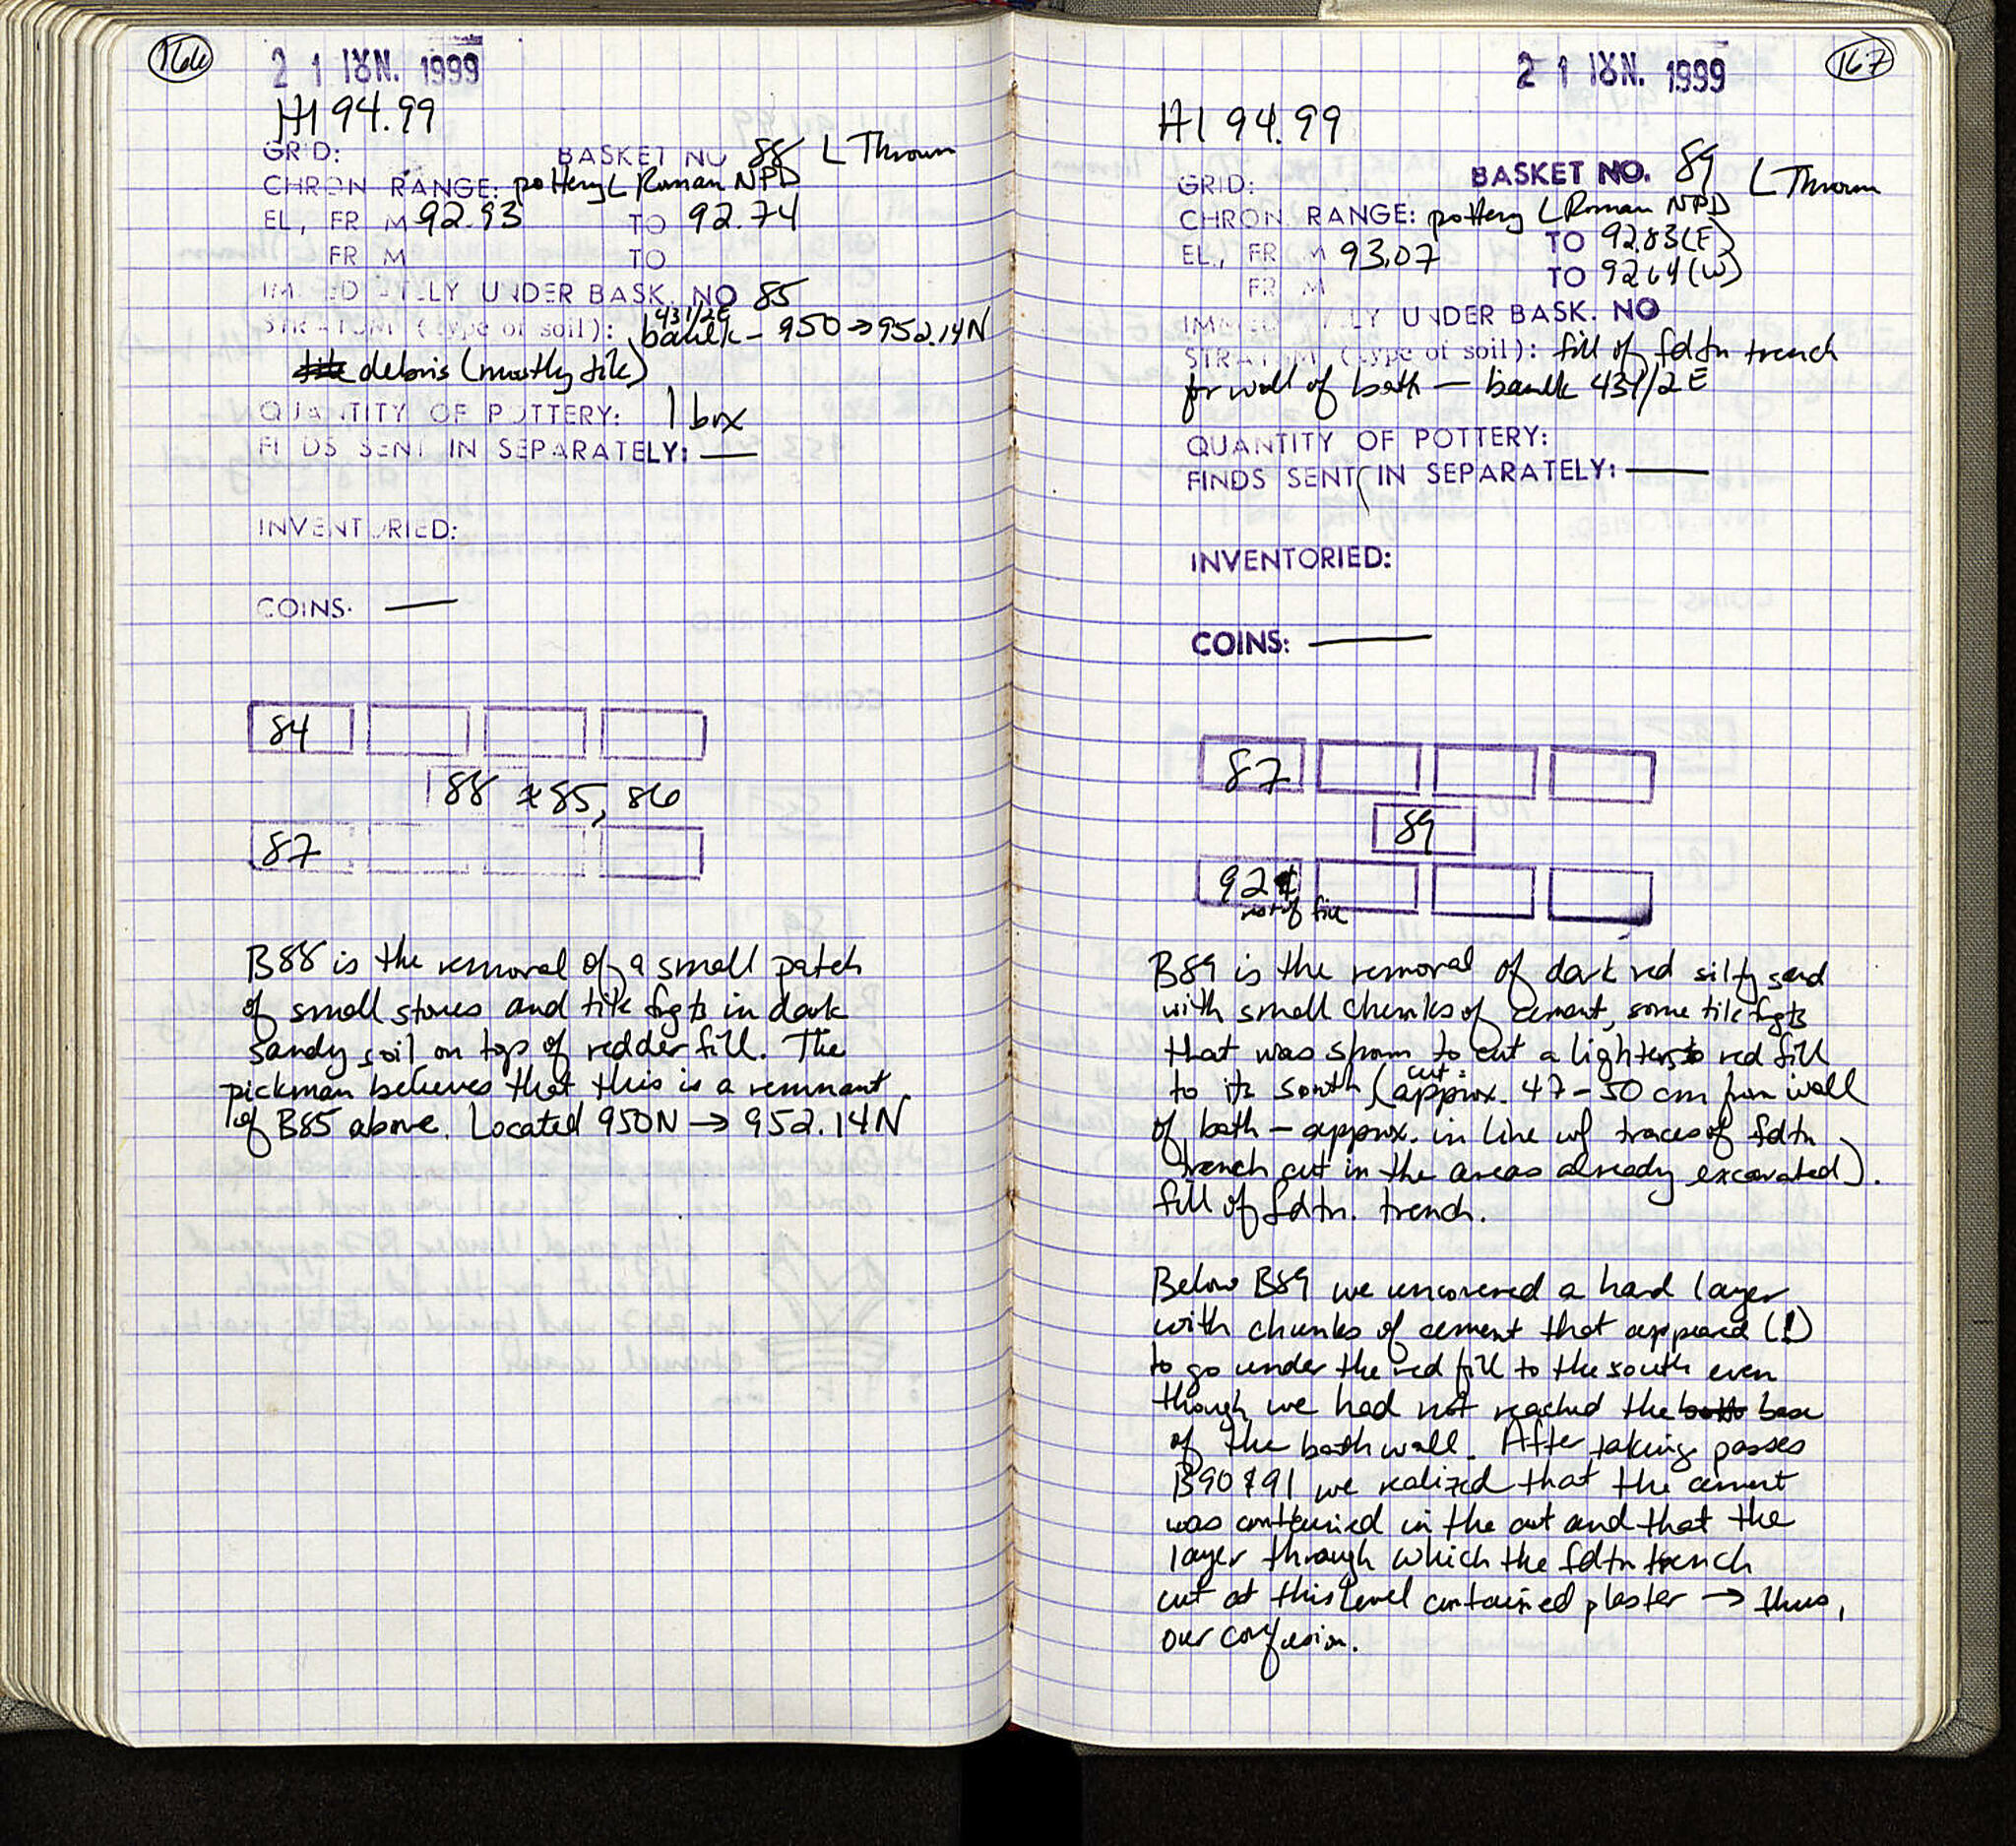 166
21 ΙΟΥΝ. 1999
H1 94.99
GRID: BASKET NO 88 L Thrown
CHRON RANGE: pottery L Roman NPD
EL, FR M 92.93 TO 92.74
FR M TO
UNDER BASK. NO 85
431/2E
(type of soil): baulk – 950 → 952.14N
debris (mostly tile)
QUANTITY OF POTTERY: 1 box
FINDS SENT IN SEPARATELY: —
INVENTORIED:
COINS. —
84
88 ≠ 85, 86
87
B88 is the removal of a small patch
of small stones and tile fragts in dark
sandy soil on top of redder fill. The
pickman believes that this is a remnant
of B85 above. Located 950N → 952.14N
167
21 ΙΟΥΝ. 1999
H1 94.99
BASKET NO. 89 L Thrown
GRID:
CHRON. RANGE: pottery L Roman NPD
EL., FR M 93.07 TO 92.83(E)
FR M TO 92.64(W)
UNDER BASK. NO
STRATUM (type of soil): fill of fdtn trench
for wall of bath — baulk 431/2E
QUANTITY OF POTTERY:
FINDS SENT IN SEPARATELY: —
INVENTORIED:
COINS: —
87
89
92 &
rest of fill
B89 is the removal of dark red silty sand
with small chunks of cement, some tile fragts
that was shown to cut a lighter red fill
to its south (cut = approx. 47–50 cm from wall
of bath – approx. in line w/ traces of fdtn
trench cut in the areas already excavated).
fill of fdtn. trench.
Below B89 we uncovered a hard layer
with chunks of cement that appeared (!)
to go under the red fill to the south even
though we had not reached the base
of the bath wall. After taking passes
B90 & 91 we realized that the cement
was contained in the cut and that the
layer through which the fdtn trench
cut at this level contained plaster → thus,
our confusion.